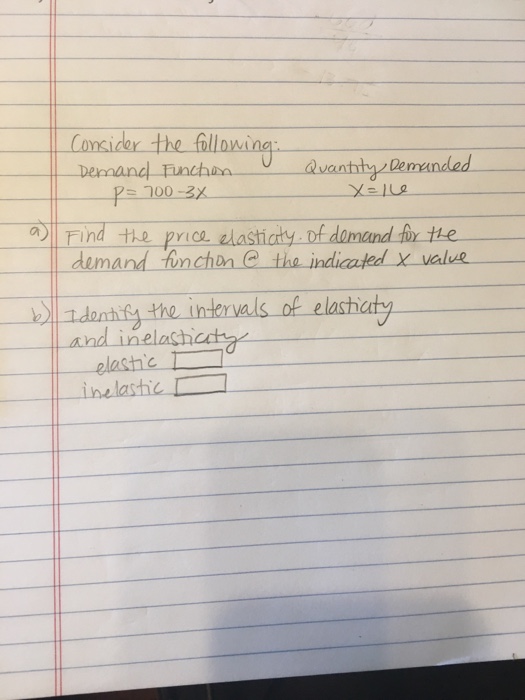 Consider the following:
Demand Function Quantity Demanded
p= 700-3x x=16
a) Find the price elasticity of demand for the
demand function @ the indicated x value
b) Identify the intervals of elasticity
and inelasticity
elastic
inelastic